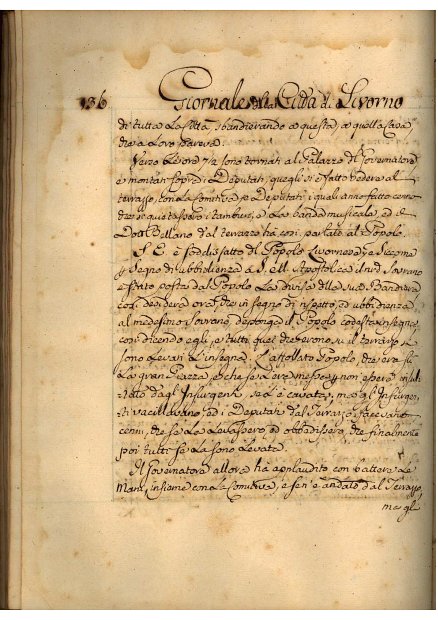 136 Giornale della Città di Livorno
di tutta la Città, sbandierando a questa, a quella Casa,
che a loro pareva.
Verso le ore 7/2 sono tornati al Palazzo di Governatore
e montati sopra i Deputati,
terrazzo, con la Comitiva, e Deputati, i quali anno fatto cenno
che si quietassero i tamburi, e la banda musicale, ed il
Dal terrazzo ha così parlato al Popolo.
S. E. è soddisfatto del Popolo Livornese, e siccome
in Segno di ubbidienza a S. M. Apostolica il nuovo Sovrano
è stato posta dal Popolo la divisa della sua Bandiera
così desidera ora che in segno di rispetto, ed ubbidienza
al medesimo Sovrano, deponga il Popolo codesta insegna
così dicendo egli, e tutti quei che erono, su il terrazzo si
sono levati l'insegna. L'affollato Popolo, che era sulla
la gran Piazza, perché se l'era messa, e non essere insul-
tato dagl'Insurgenti, se l'è cavata, ma gl'Insurgen-
ti vacillavano, ed i Deputati dal Terrazzo facevano
cenni, che se la levassero, ed obbedissero, che finalmente
poi tutti se la sono levata.
Il Governatore allora ha applaudito con battere le
Mani, insieme con la Comitiva, e sen'è andato dal Terrazzo,
ma gl'